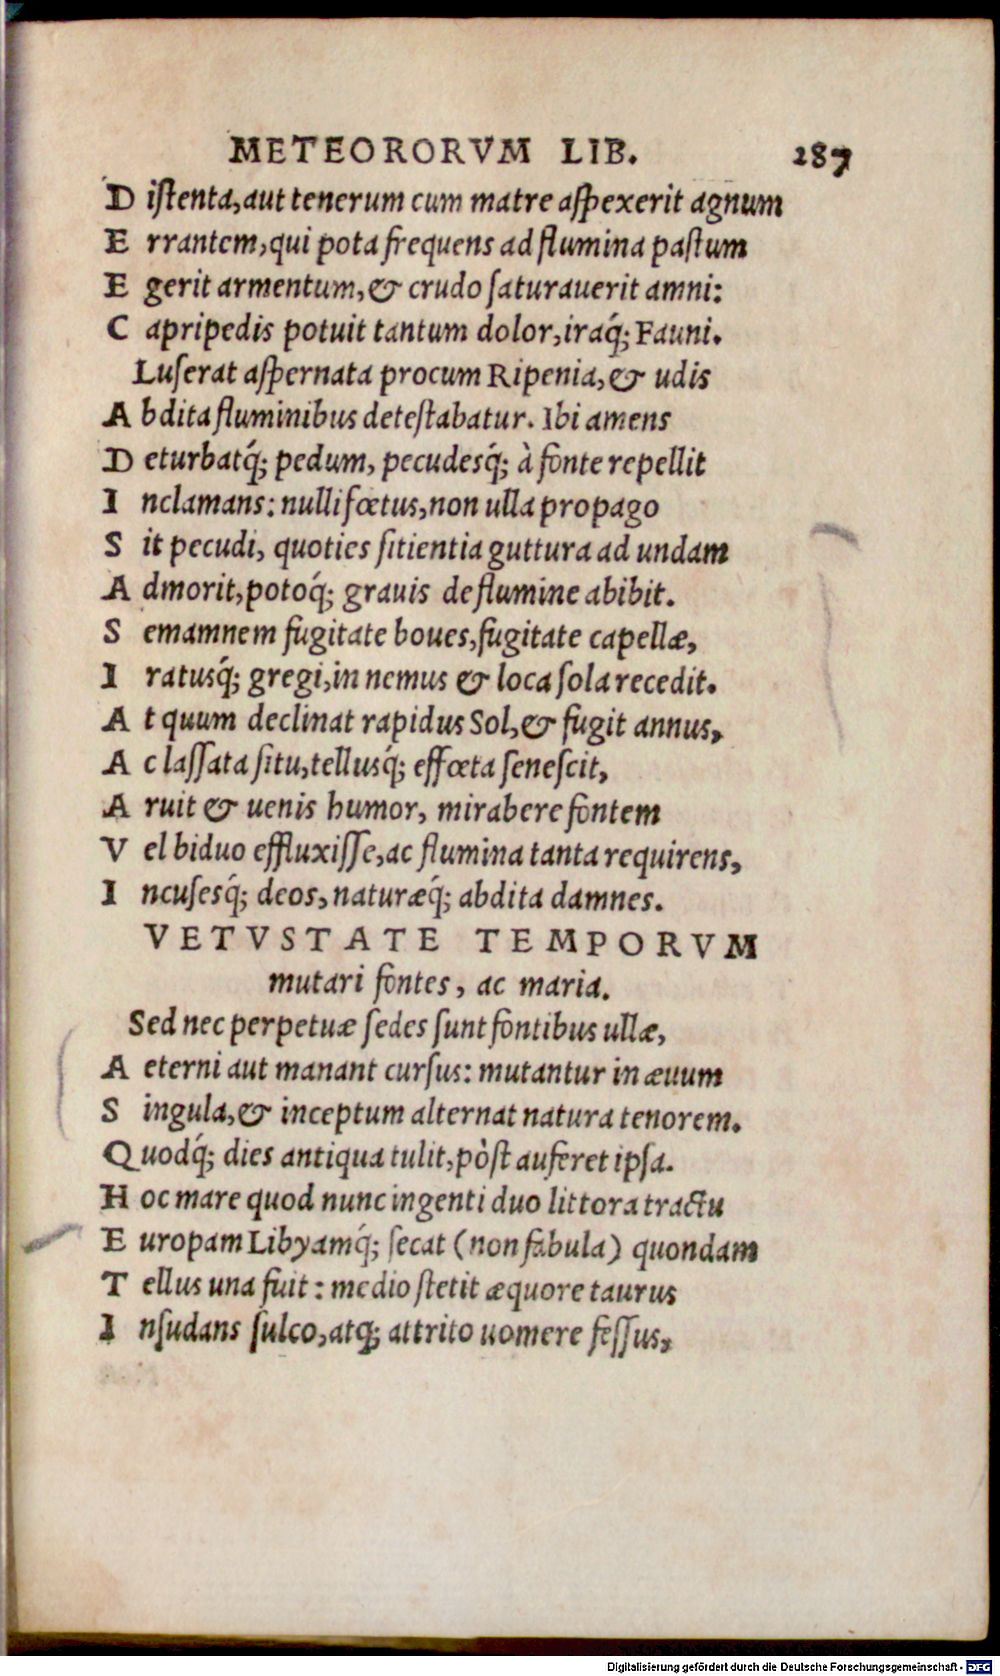 METEORORVM LIB. 287
D istenta, aut tenerum cum matre aspexerit agnum
E rrantem, qui pota frequens ad flumina pastum
E gerit armentum, & crudo saturauerit amni:
C apripedis potuit tantum dolor, iraq́; Fauni.
Luserat aspernata procum Ripenia, & udis
A bdita fluminibus detestabatur. Ibi amens
D eturbatq́; pedum, pecudesq́; à fonte repellit
I nclamans: nulli fœtus, non ulla propago
S it pecudi, quoties sitientia guttura ad undam
A dmorit, potoq́; grauis de flumine abibit.
S emamnem fugitate boues, fugitate capellæ,
I ratusq́; gregi, in nemus & loca sola recedit.
A t quum declinat rapidus Sol, & fugit annus,
A c lassata situ, tellusq́; effœta senescit,
A ruit & uenis humor, mirabere fontem
V el biduo effluxisse, ac flumina tanta requirens,
I ncusesq́; deos, naturæq́; abdita damnes.
VETVSTATE TEMPORVM
mutari fontes, ac maria.
Sed nec perpetuæ sedes sunt fontibus ullæ,
A eterni aut manant cursus: mutantur in æuum
S ingula, & inceptum alternat natura tenorem.
Q uodq́; dies antiqua tulit, pòst auferet ipsa.
H oc mare quod nunc ingenti duo littora tractu
E uropam Libyamq́; secat (non fabula) quondam
T ellus una fuit: medio stetit æquore taurus
I nsudans sulco, atq; attrito uomere fessus,
Digitalisierung gefördert durch die Deutsche Forschungsgemeinschaft - DFG